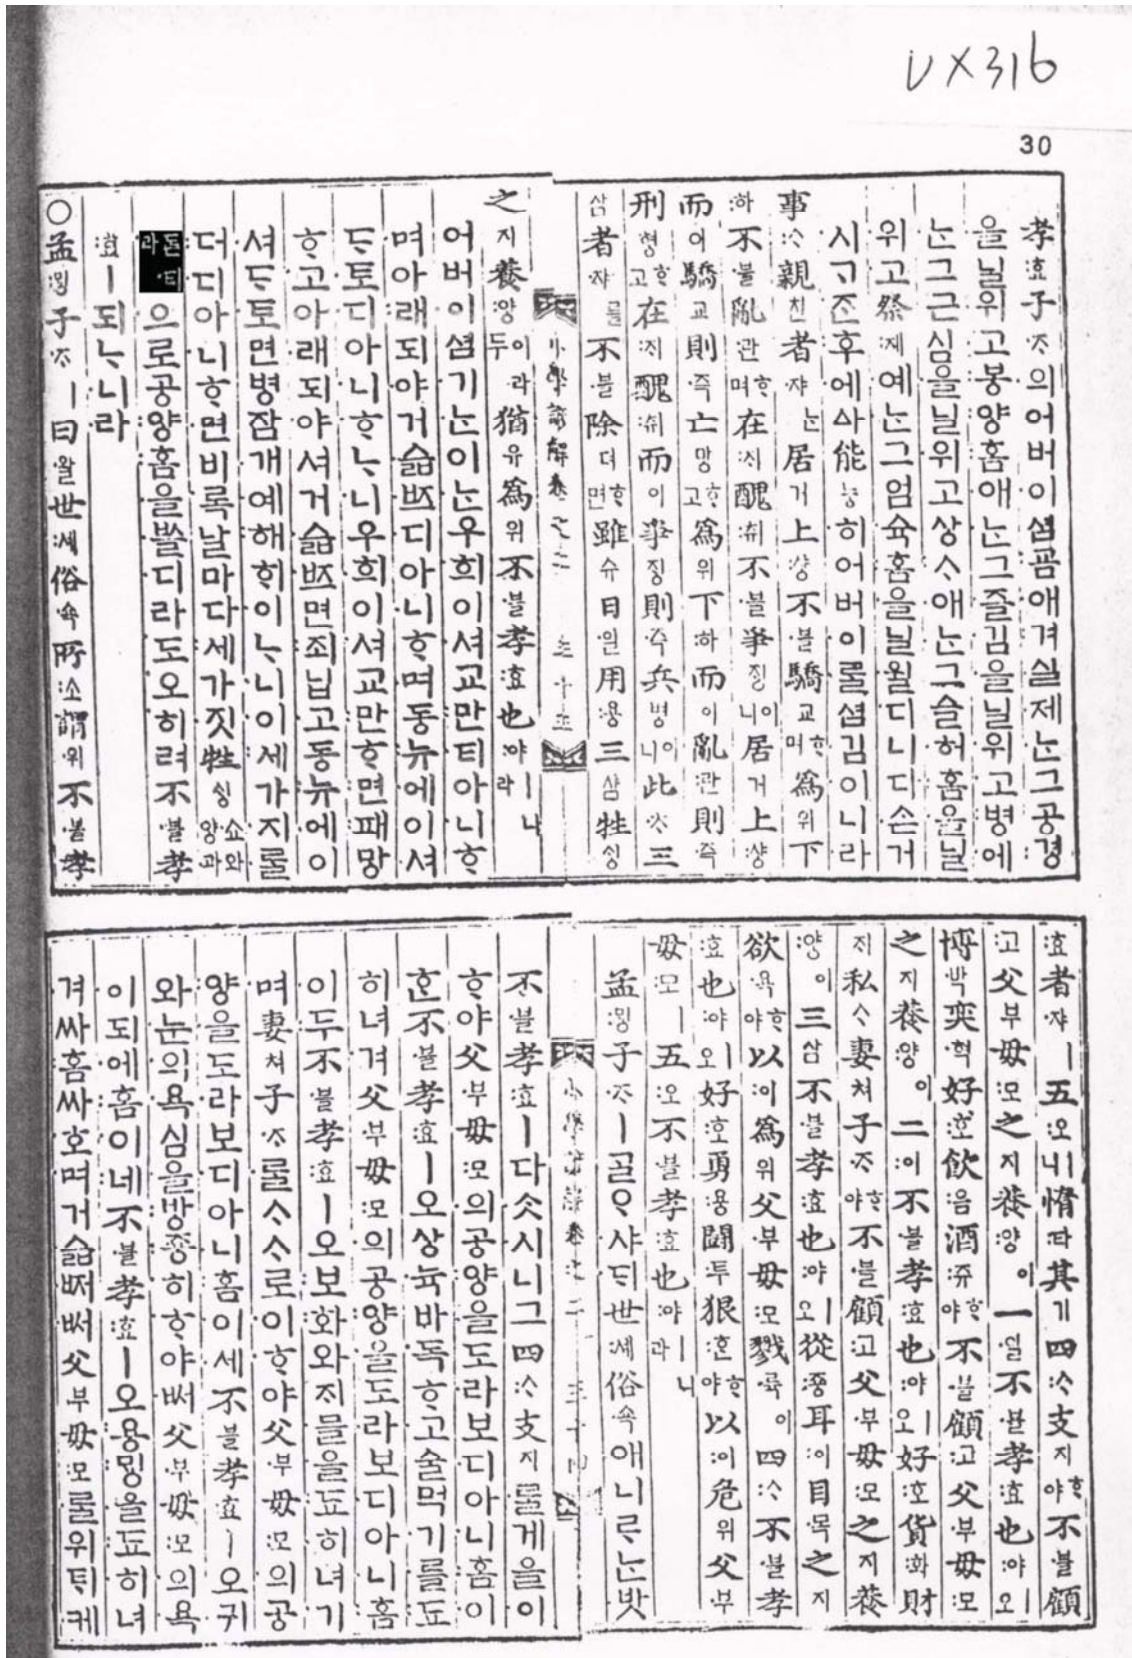 UX316
30
孝:효子ᄌᆞ의어버이셤굠애겨실제ᄂᆞᆫ그공:경
을닐위고봉양홈애ᄂᆞᆫ그즐김을닐위고병에
ᄂᆞᆫ그근심을닐위고상ᄉᆞ애ᄂᆞᆫ그슬허홈을닐
위고祭:졔예ᄂᆞᆫ그엄슉홈을닐윌디니다ᄉᆞᆺ거
시ᄀᆞᄌᆞᆫ후에ᅀᅡ能능히어버이ᄅᆞᆯ셤김이니라
事:ᄉᆞ親친者쟈ᄂᆞᆫ居거上:샹不블驕교ᄒᆞ며爲위下
:하不블亂란ᄒᆞ며在:ᄌᆡ醜:츄不블爭ᄌᆡᆼ이니居거上:샹
而이驕교則즉亡망ᄒᆞ고爲위下:하而이亂:란則즉
刑형ᄒᆞ고在:ᄌᆡ醜:츄而이爭ᄌᆡᆼ則즉兵병이니此ᄎᆞ三
삼者쟈ᄅᆞᆯ不블除뎌ᄒᆞ면雖슈日일用:용三삼牲ᄉᆡᆼ
小學諺解卷之二 三十三
之지養:양이라두猶유爲위不블孝:효也:야ㅣ니라
어버이셤기ᄂᆞᆫ이ᄂᆞᆫ우희이셔교만티아니ᄒᆞ
며아래되야거슯ᄧᅳ디아니ᄒᆞ며동뉴에이셔
ᄃᆞ토디아니ᄒᆞᄂᆞ니우희이셔교만ᄒᆞ면패망
ᄒᆞ고아래되야셔거슯ᄧᅳ면죄닙고동뉴에이
셔ᄃᆞ토면병잠개예해ᄒᆡ이ᄂᆞ니이세가지ᄅᆞᆯ
더디아니ᄒᆞ면비록날마다세가짓牲ᄉᆡᆼ쇼와양과
돋티라으로공양홈을ᄡᅳᆯ디라도오히려不블孝
:효ㅣ되ᄂᆞ니라
○孟:ᄆᆡᆼ子ᄌᆞㅣ曰왈世:셰俗쇽所:소謂위不블孝
:효者쟈ㅣ五:오ㅣ니惰:타其기四:ᄉᆞ支지ᄒᆞ야不블顧
:고父부母:모之지養:양이一일不블孝:효也:야ㅣ오
博박奕혁好:호飮:음酒:쥬ᄒᆞ야不블顧:고父부母:모
之지養:양이二:이不블孝:효也:야ㅣ오好:호貨:화財
ᄌᆡ私ᄉᆞ妻쳐子ᄌᆞᄒᆞ야不블顧:고父부母:모之지養
:양이三삼不블孝:효也:야ㅣ오從:죵耳:이目목之지
欲욕ᄒᆞ야以:이爲위父부母:모戮륙이四:ᄉᆞ不블孝
:효也:야ㅣ오好:호勇:용鬪:투狠:흔ᄒᆞ야以:이危위父부
母:모ㅣ五:오不블孝:효也:야ㅣ니라
孟:ᄆᆡᆼ子ᄌᆞㅣᄀᆞᆯᄋᆞ샤ᄃᆡ世:셰俗쇽애니ᄅᆞᄂᆞᆫ밧
小學諺解卷之二 三十四
不블孝:효ㅣ다ᄉᆞᆺ시니그四:ᄉᆞ支지ᄅᆞᆯ게을이
ᄒᆞ야父부母:모의공양을도라보디아니홈이
ᄒᆞᆫ不블孝:효ㅣ오샹뉵바독ᄒᆞ고술먹기를됴
히녀겨父부母:모의공양을도라보디아니홈
이두不블孝:효ㅣ오보화와ᄌᆡ믈을됴히녀기
며妻쳐子ᄌᆞᄅᆞᆯᄉᆞᄉᆞ로이ᄒᆞ야父부母:모의공
양을도라보디아니홈이세不블孝:효ㅣ오귀
와눈의욕심을방죵히ᄒᆞ야ᄡᅥ父부母:모의욕
이되에홈이네不블孝:효ㅣ오용ᄆᆡᆼ을됴히녀
겨싸홈싸호며거슯ᄧᅥᄡᅥ父부母:모ᄅᆞᆯ위ᄐᆡ케